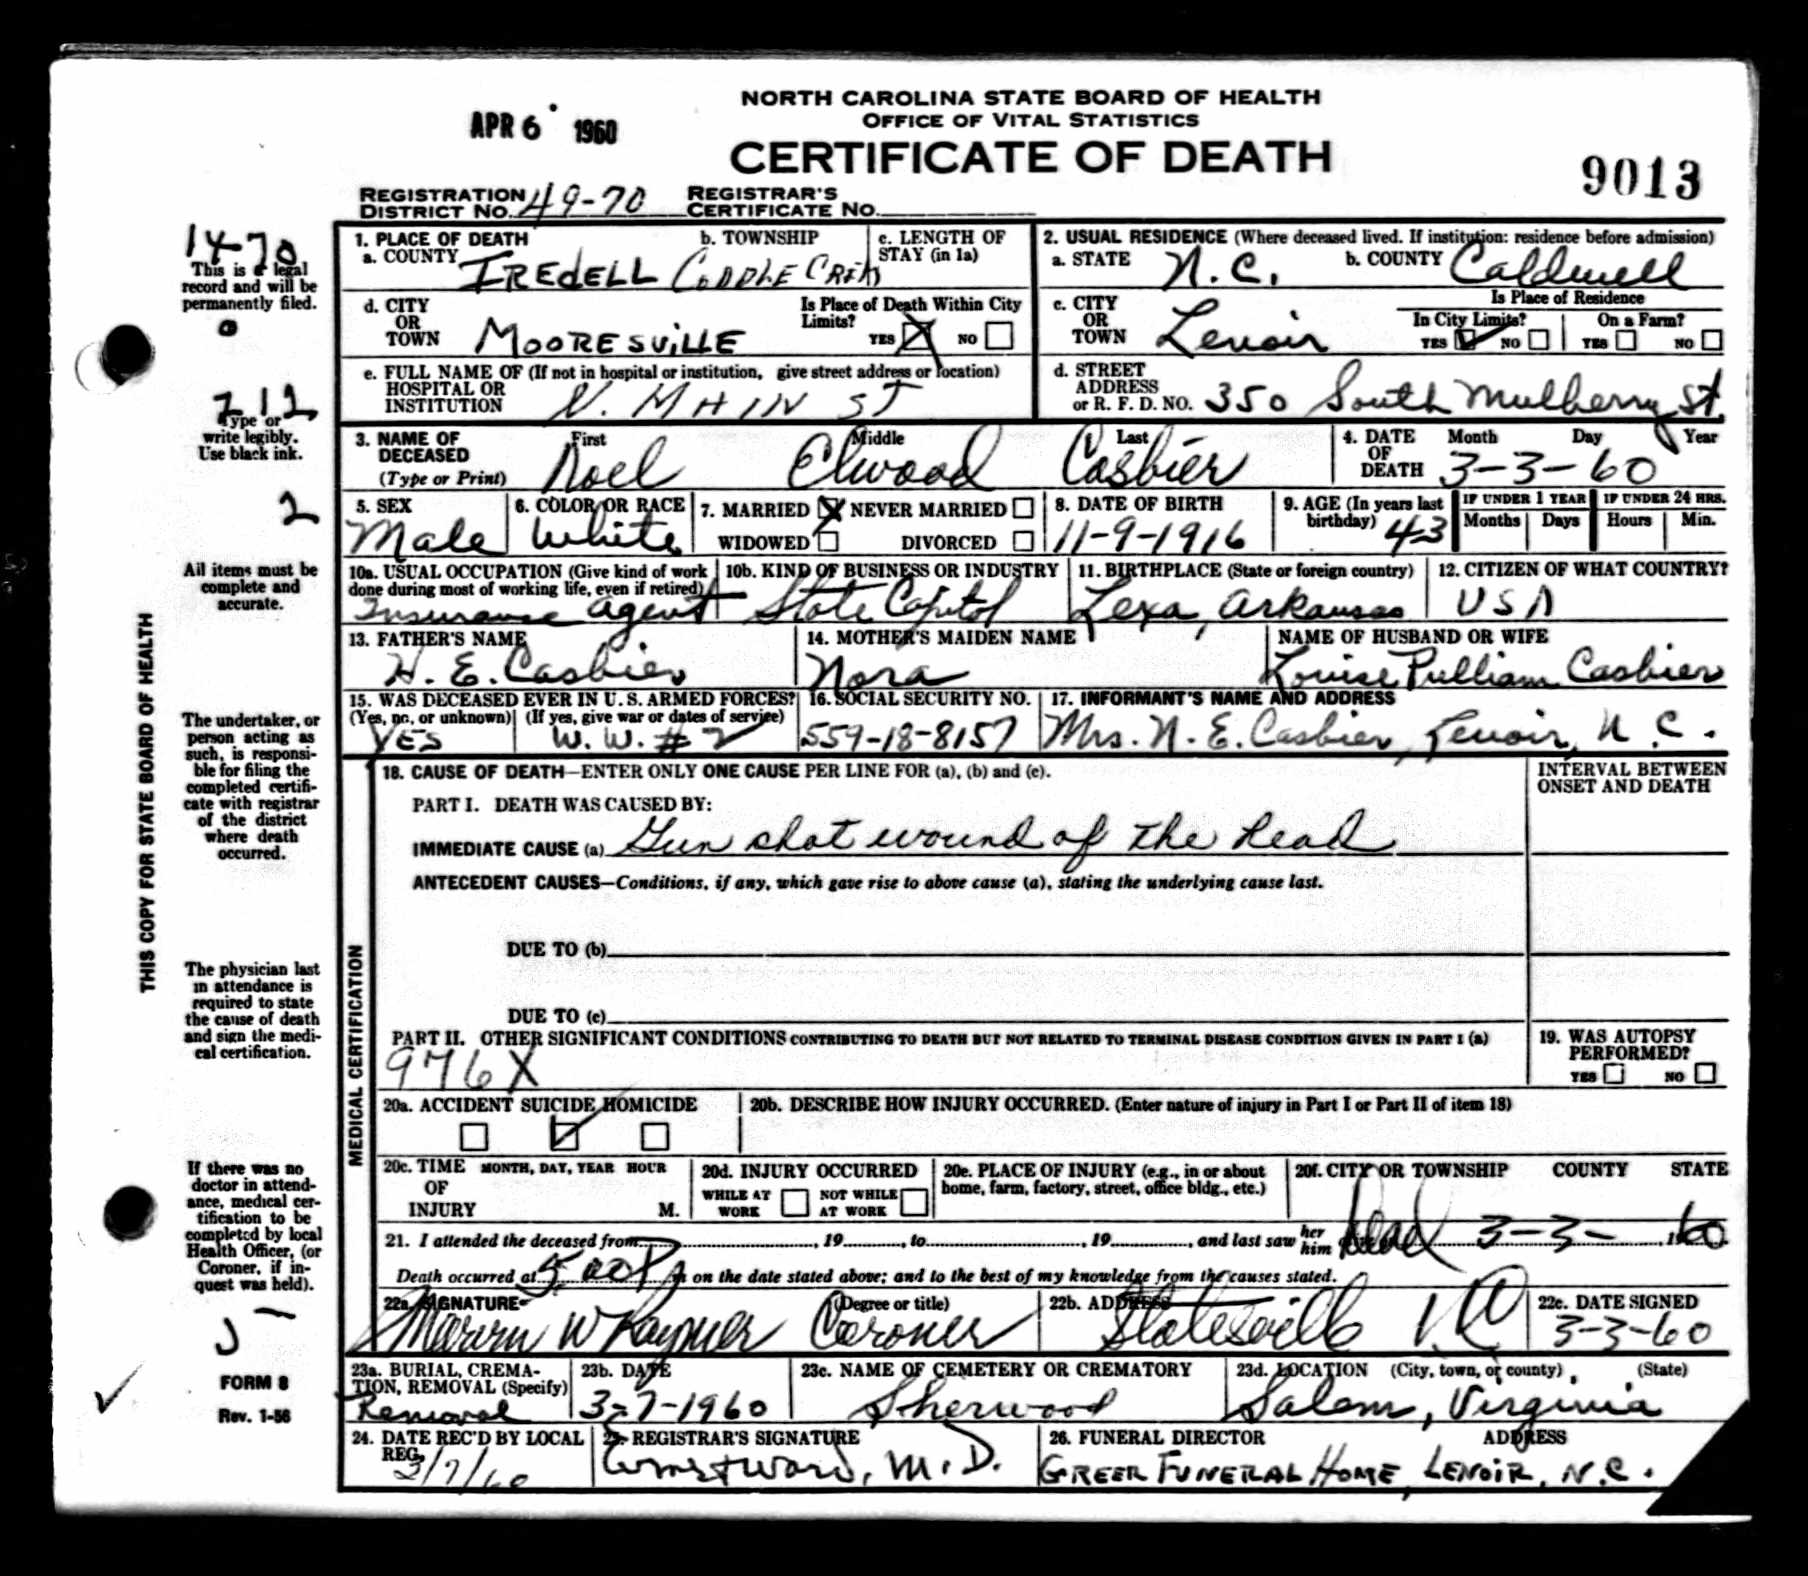 APR 6 1960
NORTH CAROLINA STATE BOARD OF HEALTH
OFFICE OF VITAL STATISTICS
CERTIFICATE OF DEATH
9013
REGISTRATION DISTRICT No. 49-70 REGISTRAR'S CERTIFICATE No.
1470
This is a legal
record and will be
permanently filed.
0
212
Type or
write legibly.
Use black ink.
2
All items must be
complete and
accurate.
The undertaker, or
person acting as
such, is responsi-
ble for filing the
completed certifi-
cate with registrar
of the district
where death
occurred.
The physician last
in attendance is
required to state
the cause of death
and sign the medi-
cal certification.
If there was no
doctor in attend-
ance, medical cer-
tification to be
completed by local
Health Officer, (or
Coroner, if in-
quest was held).
FORM 8
Rev. 1-56
THIS COPY FOR STATE BOARD OF HEALTH
1. PLACE OF DEATH
a. COUNTY IREDELL b. TOWNSHIP CODDLE CREEK c. LENGTH OF STAY (in 1a)
d. CITY OR TOWN MOORESVILLE Is Place of Death Within City Limits? YES X NO
e. FULL NAME OF (If not in hospital or institution, give street address or location)
HOSPITAL OR INSTITUTION N. MAIN ST
2. USUAL RESIDENCE (Where deceased lived. If institution: residence before admission)
a. STATE N.C. b. COUNTY Caldwell
c. CITY OR TOWN Lenoir Is Place of Residence In City Limits? YES ✓ NO On a Farm? YES NO
d. STREET ADDRESS or R. F. D. NO. 350 South Mulberry St.
3. NAME OF DECEASED (Type or Print) First Noel Middle Elwood Last Casbier
4. DATE OF DEATH Month Day Year 3-3-60
5. SEX Male
6. COLOR OR RACE White
7. MARRIED X NEVER MARRIED WIDOWED DIVORCED
8. DATE OF BIRTH 11-9-1916
9. AGE (In years last birthday) 43 IF UNDER 1 YEAR Months Days IF UNDER 24 HRS. Hours Min.
10a. USUAL OCCUPATION (Give kind of work done during most of working life, even if retired) Insurance agent
10b. KIND OF BUSINESS OR INDUSTRY State Capitol
11. BIRTHPLACE (State or foreign country) Lexa, Arkansas
12. CITIZEN OF WHAT COUNTRY? USA
13. FATHER'S NAME H. E. Casbier
14. MOTHER'S MAIDEN NAME Nora
NAME OF HUSBAND OR WIFE Louise Pulliam Casbier
15. WAS DECEASED EVER IN U. S. ARMED FORCES? (Yes, no, or unknown) YES (If yes, give war or dates of service) W. W. # 2
16. SOCIAL SECURITY NO. 559-18-8157
17. INFORMANT'S NAME AND ADDRESS Mrs. N. E. Casbier, Lenoir, N. C.
MEDICAL CERTIFICATION
18. CAUSE OF DEATH—ENTER ONLY ONE CAUSE PER LINE FOR (a), (b) and (c).
INTERVAL BETWEEN ONSET AND DEATH
PART I. DEATH WAS CAUSED BY:
IMMEDIATE CAUSE (a) Gun shot wound of the head
ANTECEDENT CAUSES—Conditions, if any, which gave rise to above cause (a), stating the underlying cause last.
DUE TO (b)
DUE TO (c)
PART II. OTHER SIGNIFICANT CONDITIONS CONTRIBUTING TO DEATH BUT NOT RELATED TO TERMINAL DISEASE CONDITION GIVEN IN PART I (a)
976X
19. WAS AUTOPSY PERFORMED? YES NO
20a. ACCIDENT SUICIDE HOMICIDE
20b. DESCRIBE HOW INJURY OCCURRED. (Enter nature of injury in Part I or Part II of item 18)
20c. TIME OF INJURY MONTH, DAY, YEAR HOUR M.
20d. INJURY OCCURRED WHILE AT WORK NOT WHILE AT WORK
20e. PLACE OF INJURY (e.g., in or about home, farm, factory, street, office bldg., etc.)
20f. CITY OR TOWNSHIP COUNTY STATE
21. I attended the deceased from , 19 , to , 19 , and last saw her him Dead 3-3- 1960
Death occurred at 5:00 P m on the date stated above; and to the best of my knowledge from the causes stated.
22a. SIGNATURE Marvin W Raymer (Degree or title) Coroner
22b. ADDRESS Statesville NC
22c. DATE SIGNED 3-3-60
23a. BURIAL, CREMATION, REMOVAL (Specify) Removal
23b. DATE 3-7-1960
23c. NAME OF CEMETERY OR CREMATORY Sherwood
23d. LOCATION (City, town, or county) (State) Salem, Virginia
24. DATE REC'D BY LOCAL REG. 3/7/60
25. REGISTRAR'S SIGNATURE Ernest Ward, M.D.
26. FUNERAL DIRECTOR ADDRESS GREER FUNERAL HOME, LENOIR, N.C.